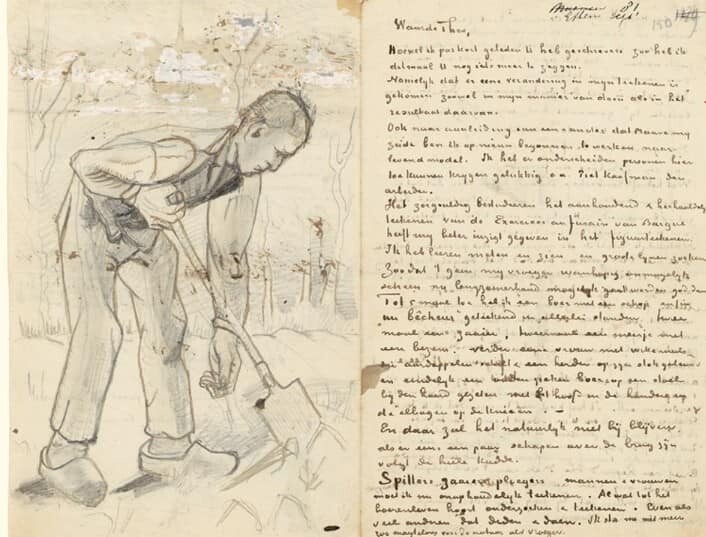 Etten Sept. 81
150
Waarde Theo,
Hoewel ik pas kort geleden U heb geschreven zoo heb ik
ditmaal U nog iets meer te zeggen.
Namelijk dat er eene verandering in mijn teekenen is
gekomen zoowel in mijn manier van doen als in het
resultaat daarvan.
Ook naar aanleiding van een en ander dat Mauve my
zeide ben ik op nieuw begonnen te werken naar
levend model. Ik heb er onderscheiden personen hier
toe kunnen krygen gelukkig o.a. Piet Kaufman den
arbeider.
Het zorgvuldig bestudeeren het aanhoudend & herhaaldelyk
teekenen van de Exercices au fusain van Bargue
heeft my beter inzigt gegeven in het figuurteekenen.
Ik heb leeren meten en zien en groote lynen zoeken
Zoo dat 't geen my vroeger wanhopig onmogelyk
scheen nu langzamerhand mogelyk gaat worden
Tot 5 maal toe heb ik een boer met een schop enfin
un bêcheur geteekend in allerlei standen, twee
maal een zaaijer, tweemaal een meisje met
een bezem. Verder eene vrouw met witte muts
die aardappelen schilt & een herder op zijn stok geleund
en eindelyk een ouden zieken boer op een stoel
bij den haard gezeten met het hoofd in de handen en
de elbogen op de knieen. –
En daar zal het natuurlyk niet bij blijven
als er eens een paar schapen over de brug zijn
volgt de heele kudde.
Spitters zaaiers ploegers mannen & vrouwen
moet ik nu onophoudelyk teekenen. Al wat tot het
boerenleven hoort onderzoeken & teekenen. Even als
veel anderen dat deden & doen. Ik sta nu niet meer
zoo magteloos voor de natuur als vroeger.